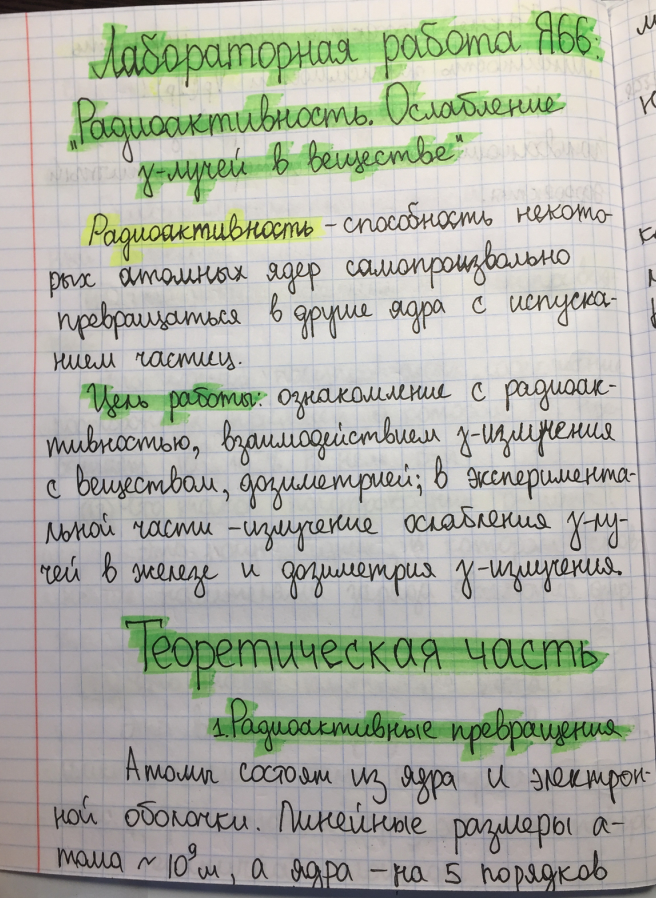 Лабораторная работа Я66:
"Радиоактивность. Ослабление
γ-лучей в веществе"
Радиоактивность - способность некото-
рых атомных ядер самопроизвольно
превращаться в другие ядра с испуска-
нием частиц.
Цель работы: ознакомление с радиоак-
тивностью, взаимодействием γ-излучения
с веществом, дозиметрией; в эксперимента-
льной части - излучение ослабления γ-лу-
чей в железе и дозиметрия γ-излучения.
Теоретическая часть
1. Радиоактивные превращения
Атомы состоят из ядра и электрон-
ной оболочки. Линейные размеры а-
тома ~ 10⁹ м, а ядра - на 5 порядков